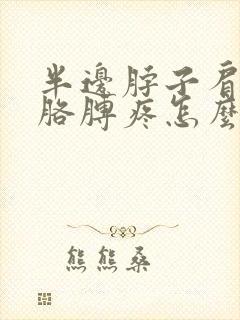 半邊脖子肩
胳脾疼怎麼
熊熊桑